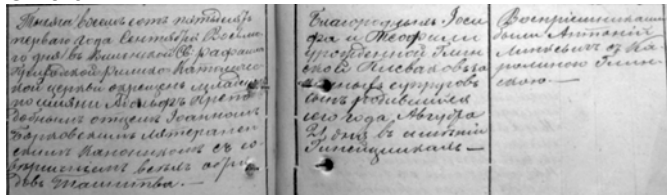 Тысяча восемьсотъ пятьдесятъ
перваго года Сентября восьма-
го дня въ Виленской Св. Рафаила
Приходской Римско-Католичес-
кой церкви окрещенъ младенецъ
по имени Адольфъ препо-
добнымъ отцемъ Іоанномъ
латеранен-
скимъ Каноникомъ съ со-
вершеніемъ всѣхъ обря-
довъ таинства.—
Благородныхъ Іоси-
фа и Теофили
урожденной Глин-
ской
законныхъ супруговъ
сынъ родившійся
сего года Августа
21 дня въ имѣніи
Воспріемниками
были Антоній
съ Ка-
ролиною Глин-
скою.—